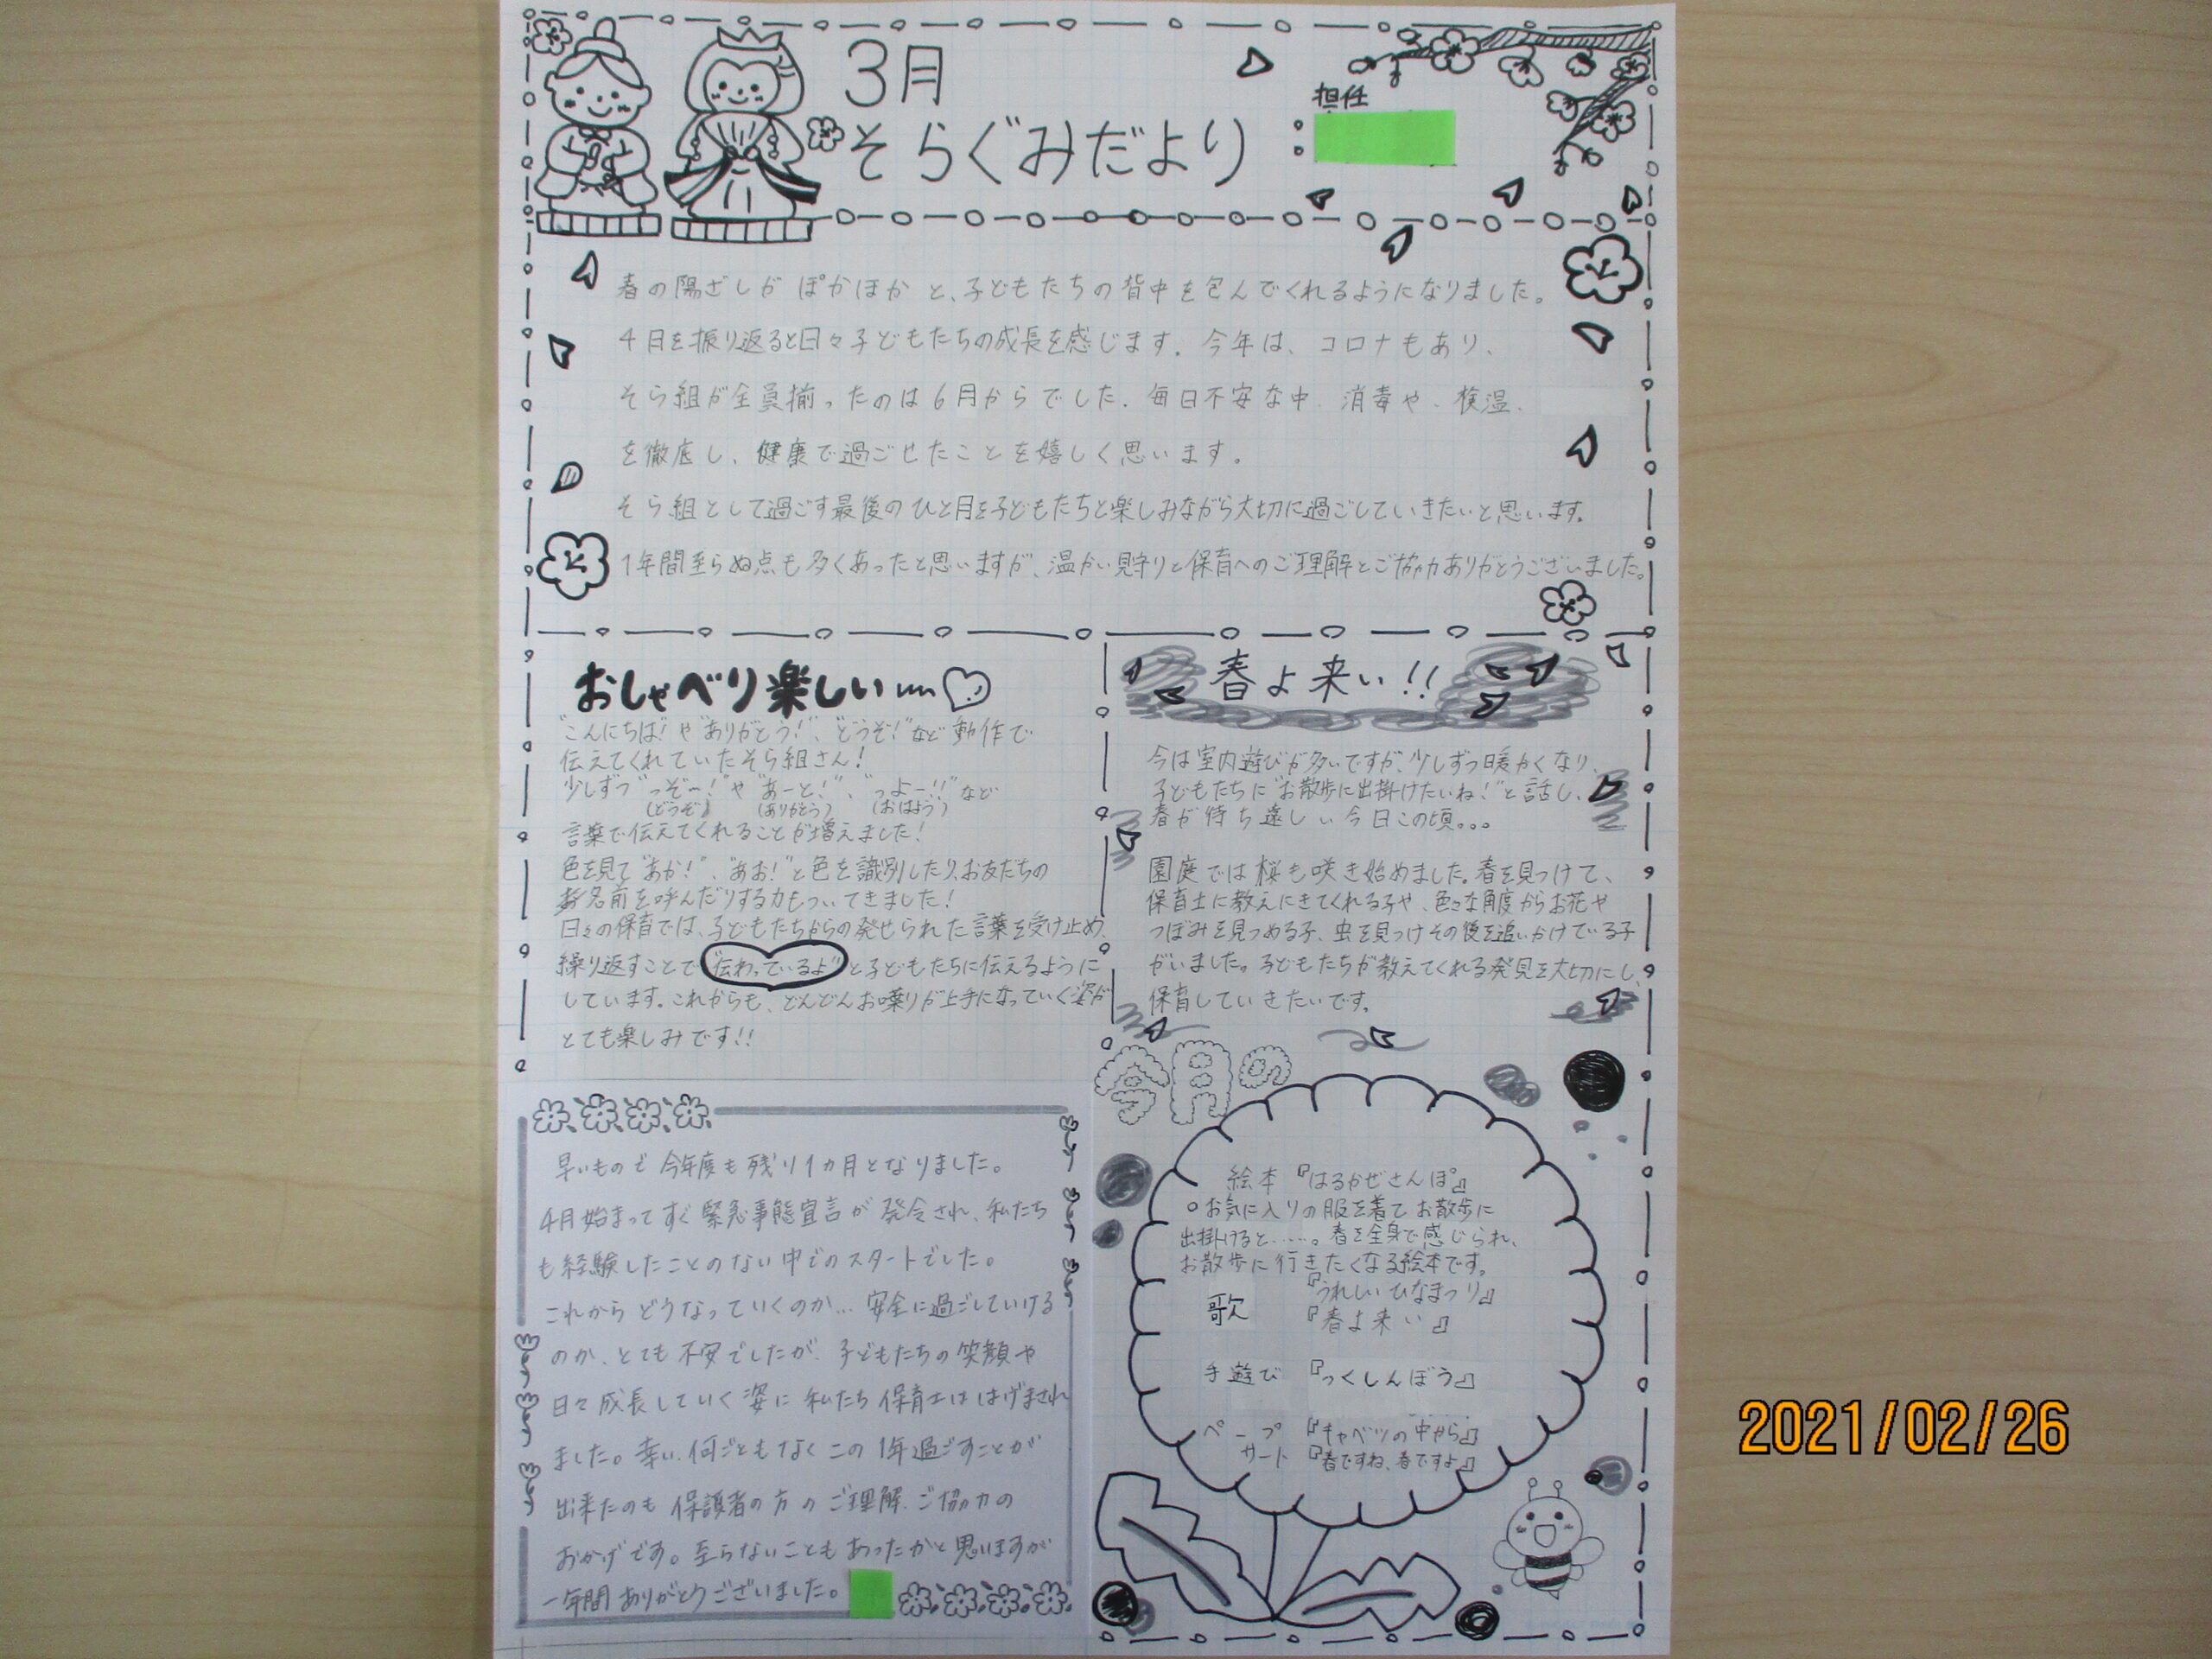 3月
そらぐみだより
担任
春の陽ざしが ぽかぽか と、子どもたちの背中を包んでくれるようになりました。
4月を振り返ると日々子どもたちの成長を感じます。今年は、コロナもあり、
そら組が全員揃ったのは6月からでした。毎日不安な中、消毒や、検温、
を徹底し、健康で過ごせたことを嬉しく思います。
そら組として過ごす最後のひと月を子どもたちと楽しみながら大切に過ごしていきたいと思います。
1年間至らぬ点も多くあったと思いますが、温かい見守りと保育へのご理解とご協力ありがとうございました。
おしゃべり楽しい
"こんにちは!"や"ありがとう!"、"どうぞ!"など動作で
伝えてくれていたそら組さん!
少しずつ"っぞ〜!"や"あーと!"、"っよー!!"など
(どうぞ) (ありがとう) (おはよう)
言葉で伝えてくれることが増えました!
色を見て"あか!"、"あお!"と色を識別したり、お友だちの
お名前を呼んだりする力もついてきました!
日々の保育では、子どもたちからの発せられた言葉を受け止め、
繰り返すことで"伝わっているよ"と子どもたちに伝えるように
しています。これからも、どんどんお喋りが上手になっていく姿が
とても楽しみです!!
春よ来い!!
今は室内遊びが多いですが、少しずつ暖かくなり、
子どもたちに"お散歩に出掛けたいね!"と話し、
春が待ち遠しい今日この頃。。。
園庭では桜も咲き始めました。春を見つけて、
保育士に教えにきてくれる子や、色々な角度からお花や
つぼみを見つめる子、虫を見つけその後を追いかけている子
がいました。子どもたちが教えてくれる発見を大切にし、
保育していきたいです。
早いもので 今年度も残り1ヵ月となりました。
4月始まってすぐ緊急事態宣言が発令され、私たち
も経験したことのない中でのスタートでした。
これから どうなっていくのか… 安全に過ごしていける
のか、とても不安でしたが、子どもたちの笑顔や
日々成長していく姿に 私たち保育士ははげまされ
ました。幸い、何ごともなく この1年過ごすことが
出来たのも 保護者の方のご理解、ご協力の
おかげです。至らないこともあったかと思いますが
一年間ありがとうございました。
今月の
絵本 『はるかぜさんぽ』
○お気に入りの服を着て お散歩に
出掛けると……。春を全身で感じられ、
お散歩に行きたくなる絵本です。
歌 『うれしいひなまつり』
『春よ来い』
手遊び 『つくしんぼう』
ペープサート 『キャベツの中から』
『春ですね、春ですよ』
2021/02/26